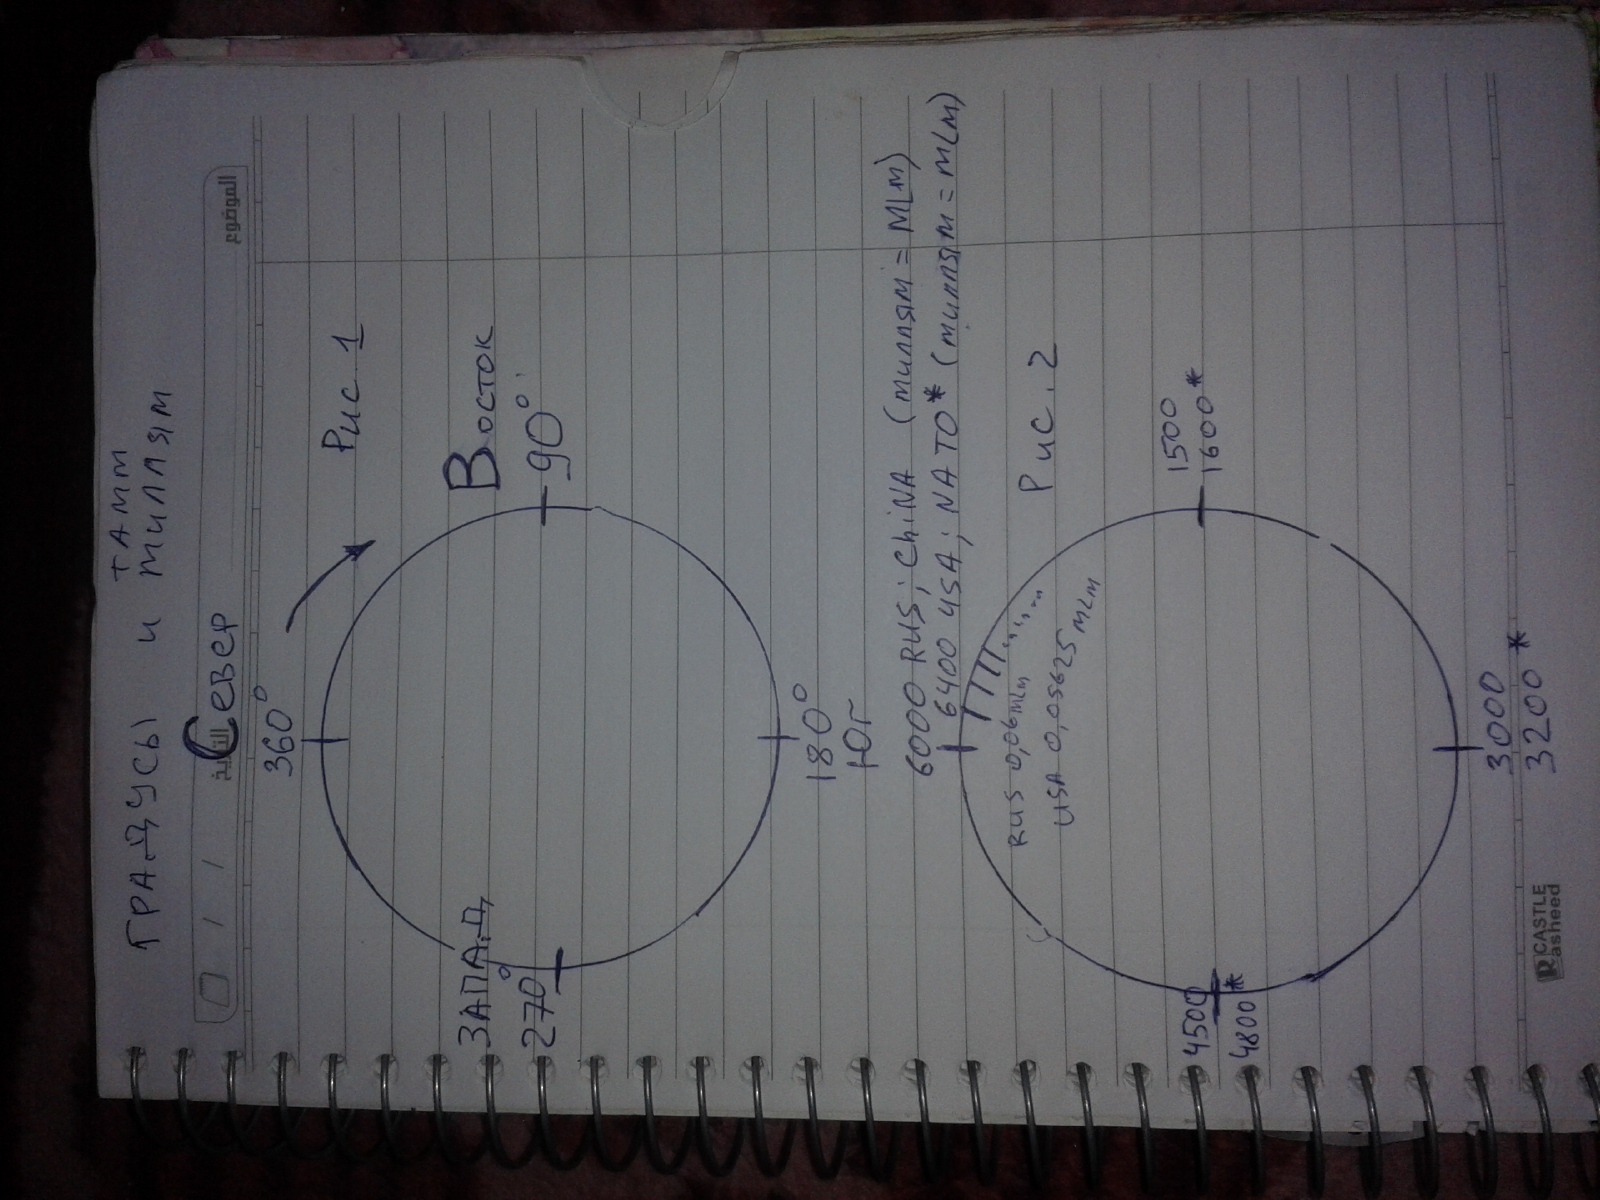 ТАММ
ГРАДУСЫ и миллям
الموضوع
التاريخ
/ /
Север
360°
Рис 1
ЗАПАД
270°
Восток
90°
180°
Юг
6000 RUS; ChiNA (миллям = MLM)
6400 USA; NATO* (миллям = MLM)
Рис. 2
RUS 0,06 MLM
USA 0,05625 MLM
4500
4800*
1500
1600*
3000
3200*
R CASTLE
asheed